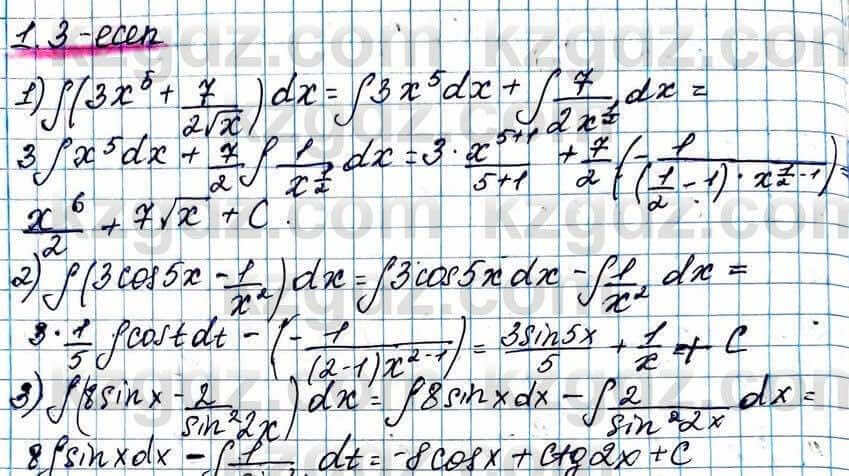 1.3-есеп
1) ∫(3x⁵ + 7/(2√x)) dx = ∫3x⁵dx + ∫7/(2x^(1/2)) dx =
3∫x⁵dx + 7/2 ∫1/(x^(1/2)) dx = 3 · x^(5+1)/(5+1) + 7/2 (-1/((1/2 - 1) · x^(1/2 - 1))) =
x⁶/2 + 7√x + C.
2) ∫(3cos5x - 1/x²) dx = ∫3cos5x dx - ∫1/x² dx =
3 · 1/5 ∫cost dt - (-1/((2-1)x^(2-1))) = 3sin5x/5 + 1/x + C
3) ∫(8sinx - 2/(sin²2x)) dx = ∫8sinxdx - ∫2/(sin²2x) dx =
8∫sinxdx - ∫1/ dt = -8cosx + ctg2x + C
kzgdz.com